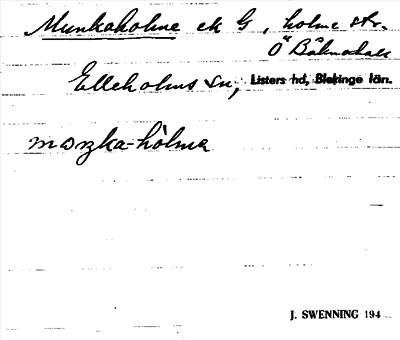 Munkaholme ek G, holme str.
Ö Båknakull
Elleholms sn, Listers hd, Blekinge län.
møŋka-hòlma
J. SWENNING 194